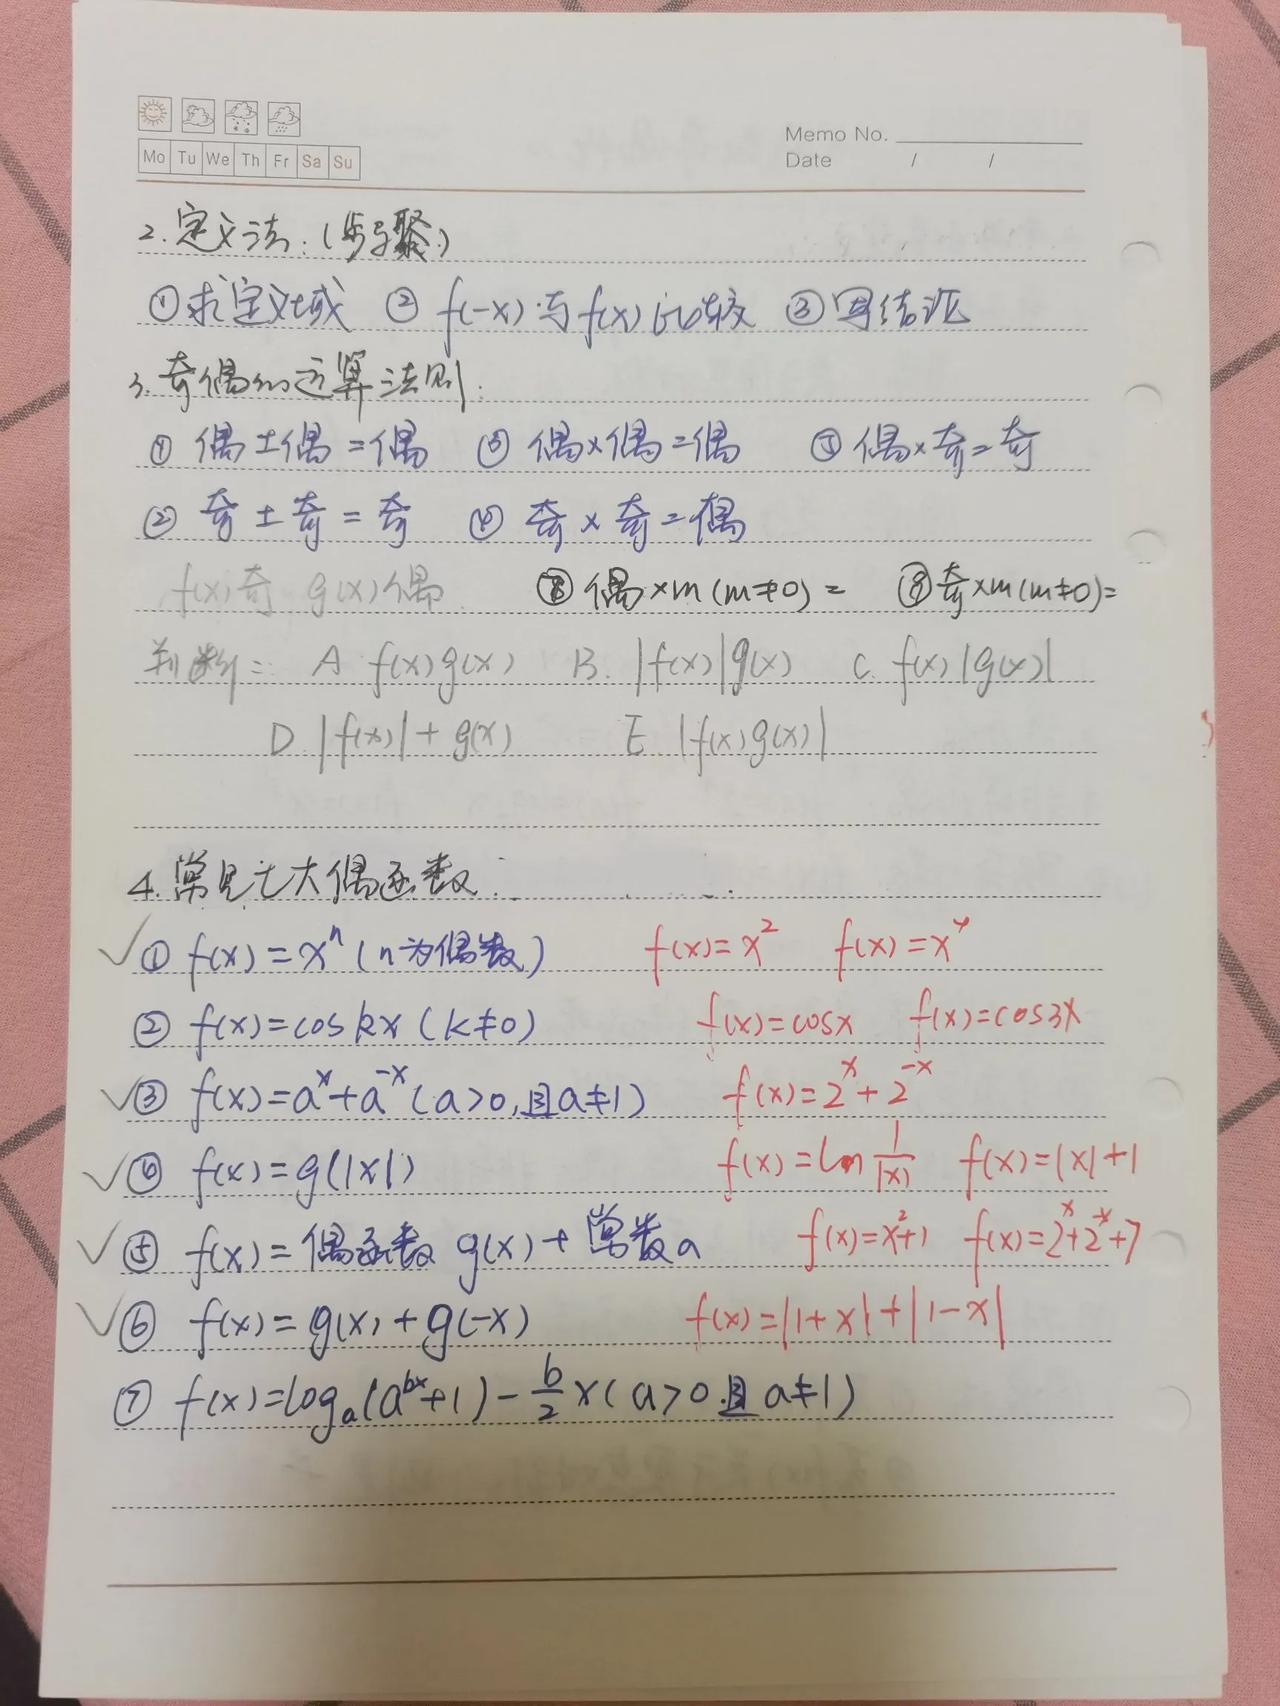 Mo Tu We Th Fr Sa Su
Memo No.
Date / /
2.定义法:(步骤)
①求定义域 ② f(-x)与f(x)比较 ③写结论
3.奇偶的运算法则:
① 偶±偶=偶 ③ 偶×偶=偶 ⑤ 偶×奇=奇
② 奇±奇=奇 ④ 奇×奇=偶
f(x)奇 g(x)偶 ⑧偶×m(m≠0)= ⑨奇×m(m≠0)=
判断: A f(x)g(x) B. |f(x)|g(x) C. f(x)|g(x)|
D |f(x)|+g(x) E |f(x)g(x)|
4.常见七大偶函数:
① f(x)=xⁿ(n为偶数) f(x)=x² f(x)=x⁴
② f(x)=cos kx (k≠0) f(x)=cosx f(x)=cos3x
③ f(x)=a^x+a^-x (a>0,且a≠1) f(x)=2^x+2^-x
④ f(x)=g(|x|) f(x)=ln 1/|x| f(x)=|x|+1
⑤ f(x)=偶函数 g(x)+常数a f(x)=x²+1 f(x)=2^x+2^-x+7
⑥ f(x)=g(x)+g(-x) f(x)=|1+x|+|1-x|
⑦ f(x)=logₐ(a^bx+1)-b/2 x(a>0且a≠1)